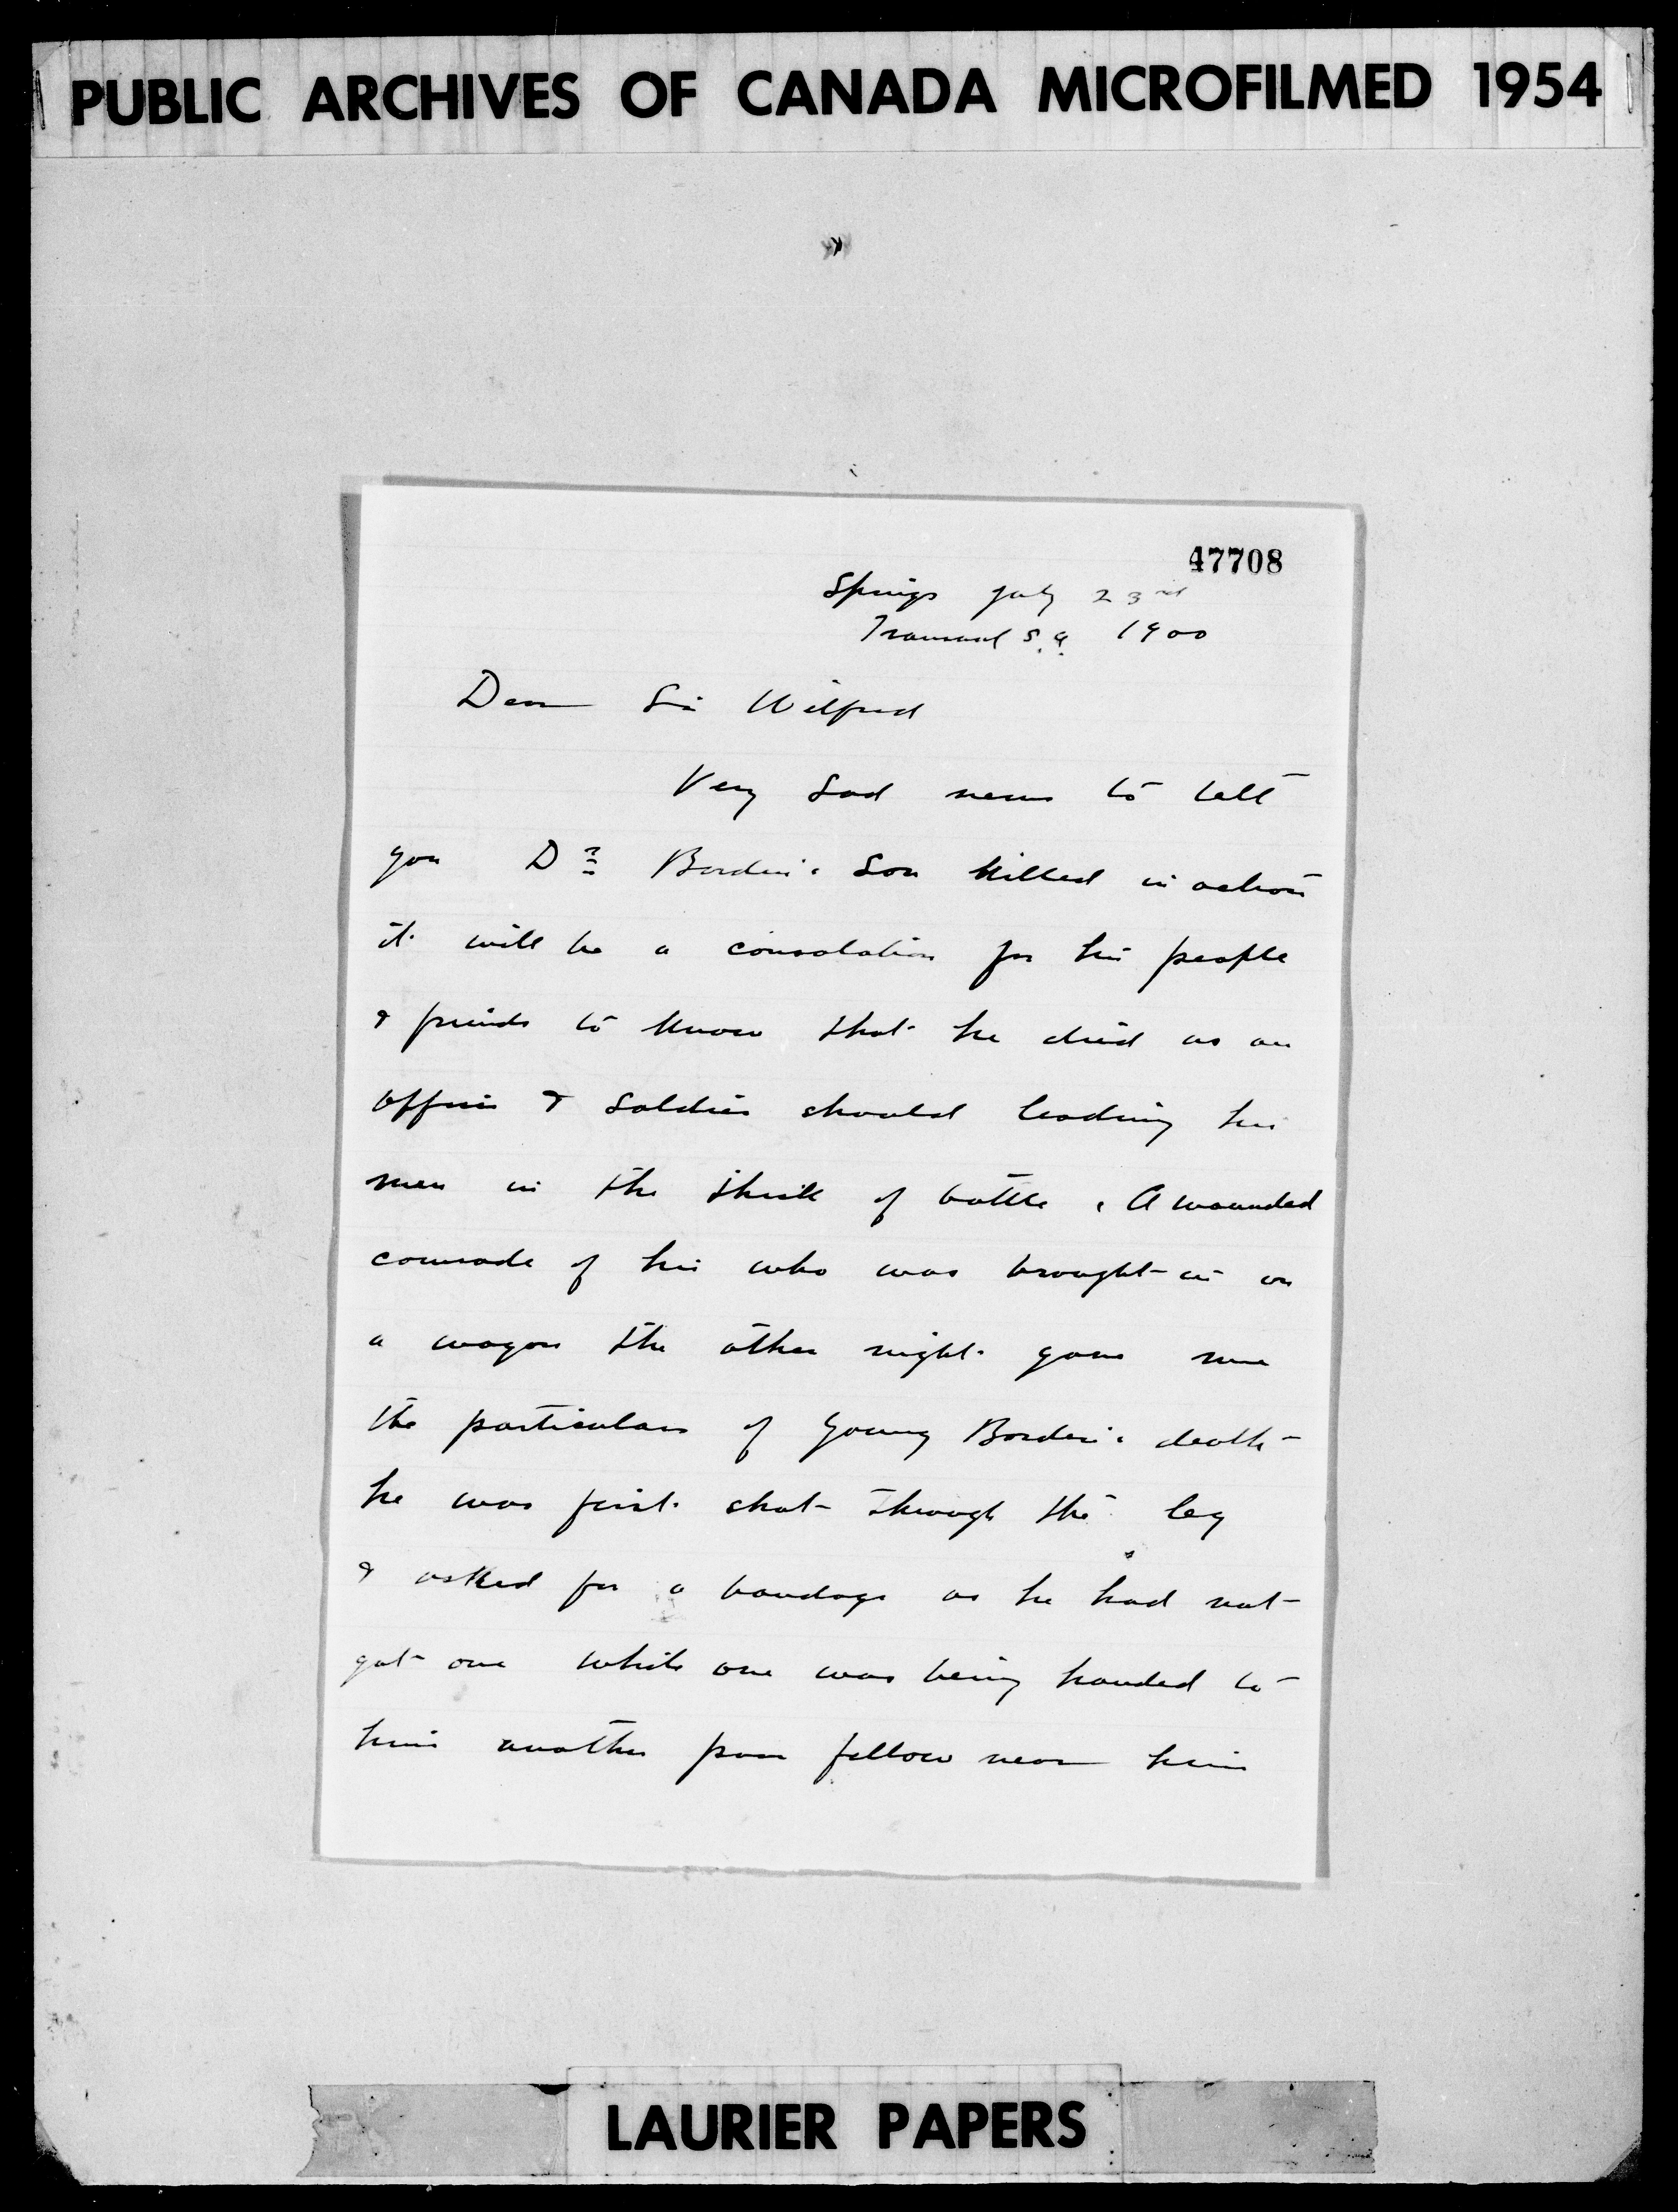 PUBLIC ARCHIVES OF CANADA MICROFILMED 1954
47708
Springs July 23rd
Transvaal S.A. 1900
Dear Sir Wilfred
Very sad news to tell
you Dr Borden's son killed in action
it will be a consolation for his people
& friends to know that he died as an
officer & soldier should leading his
men in the thick of battle. A wounded
comrade of his who was brought in on
a wagon the other night gave me
the particulars of young Borden's death -
he was first shot through the leg
& asked for a bandage as he had not
got one while one was being handed to
him another poor fellow near him
LAURIER PAPERS